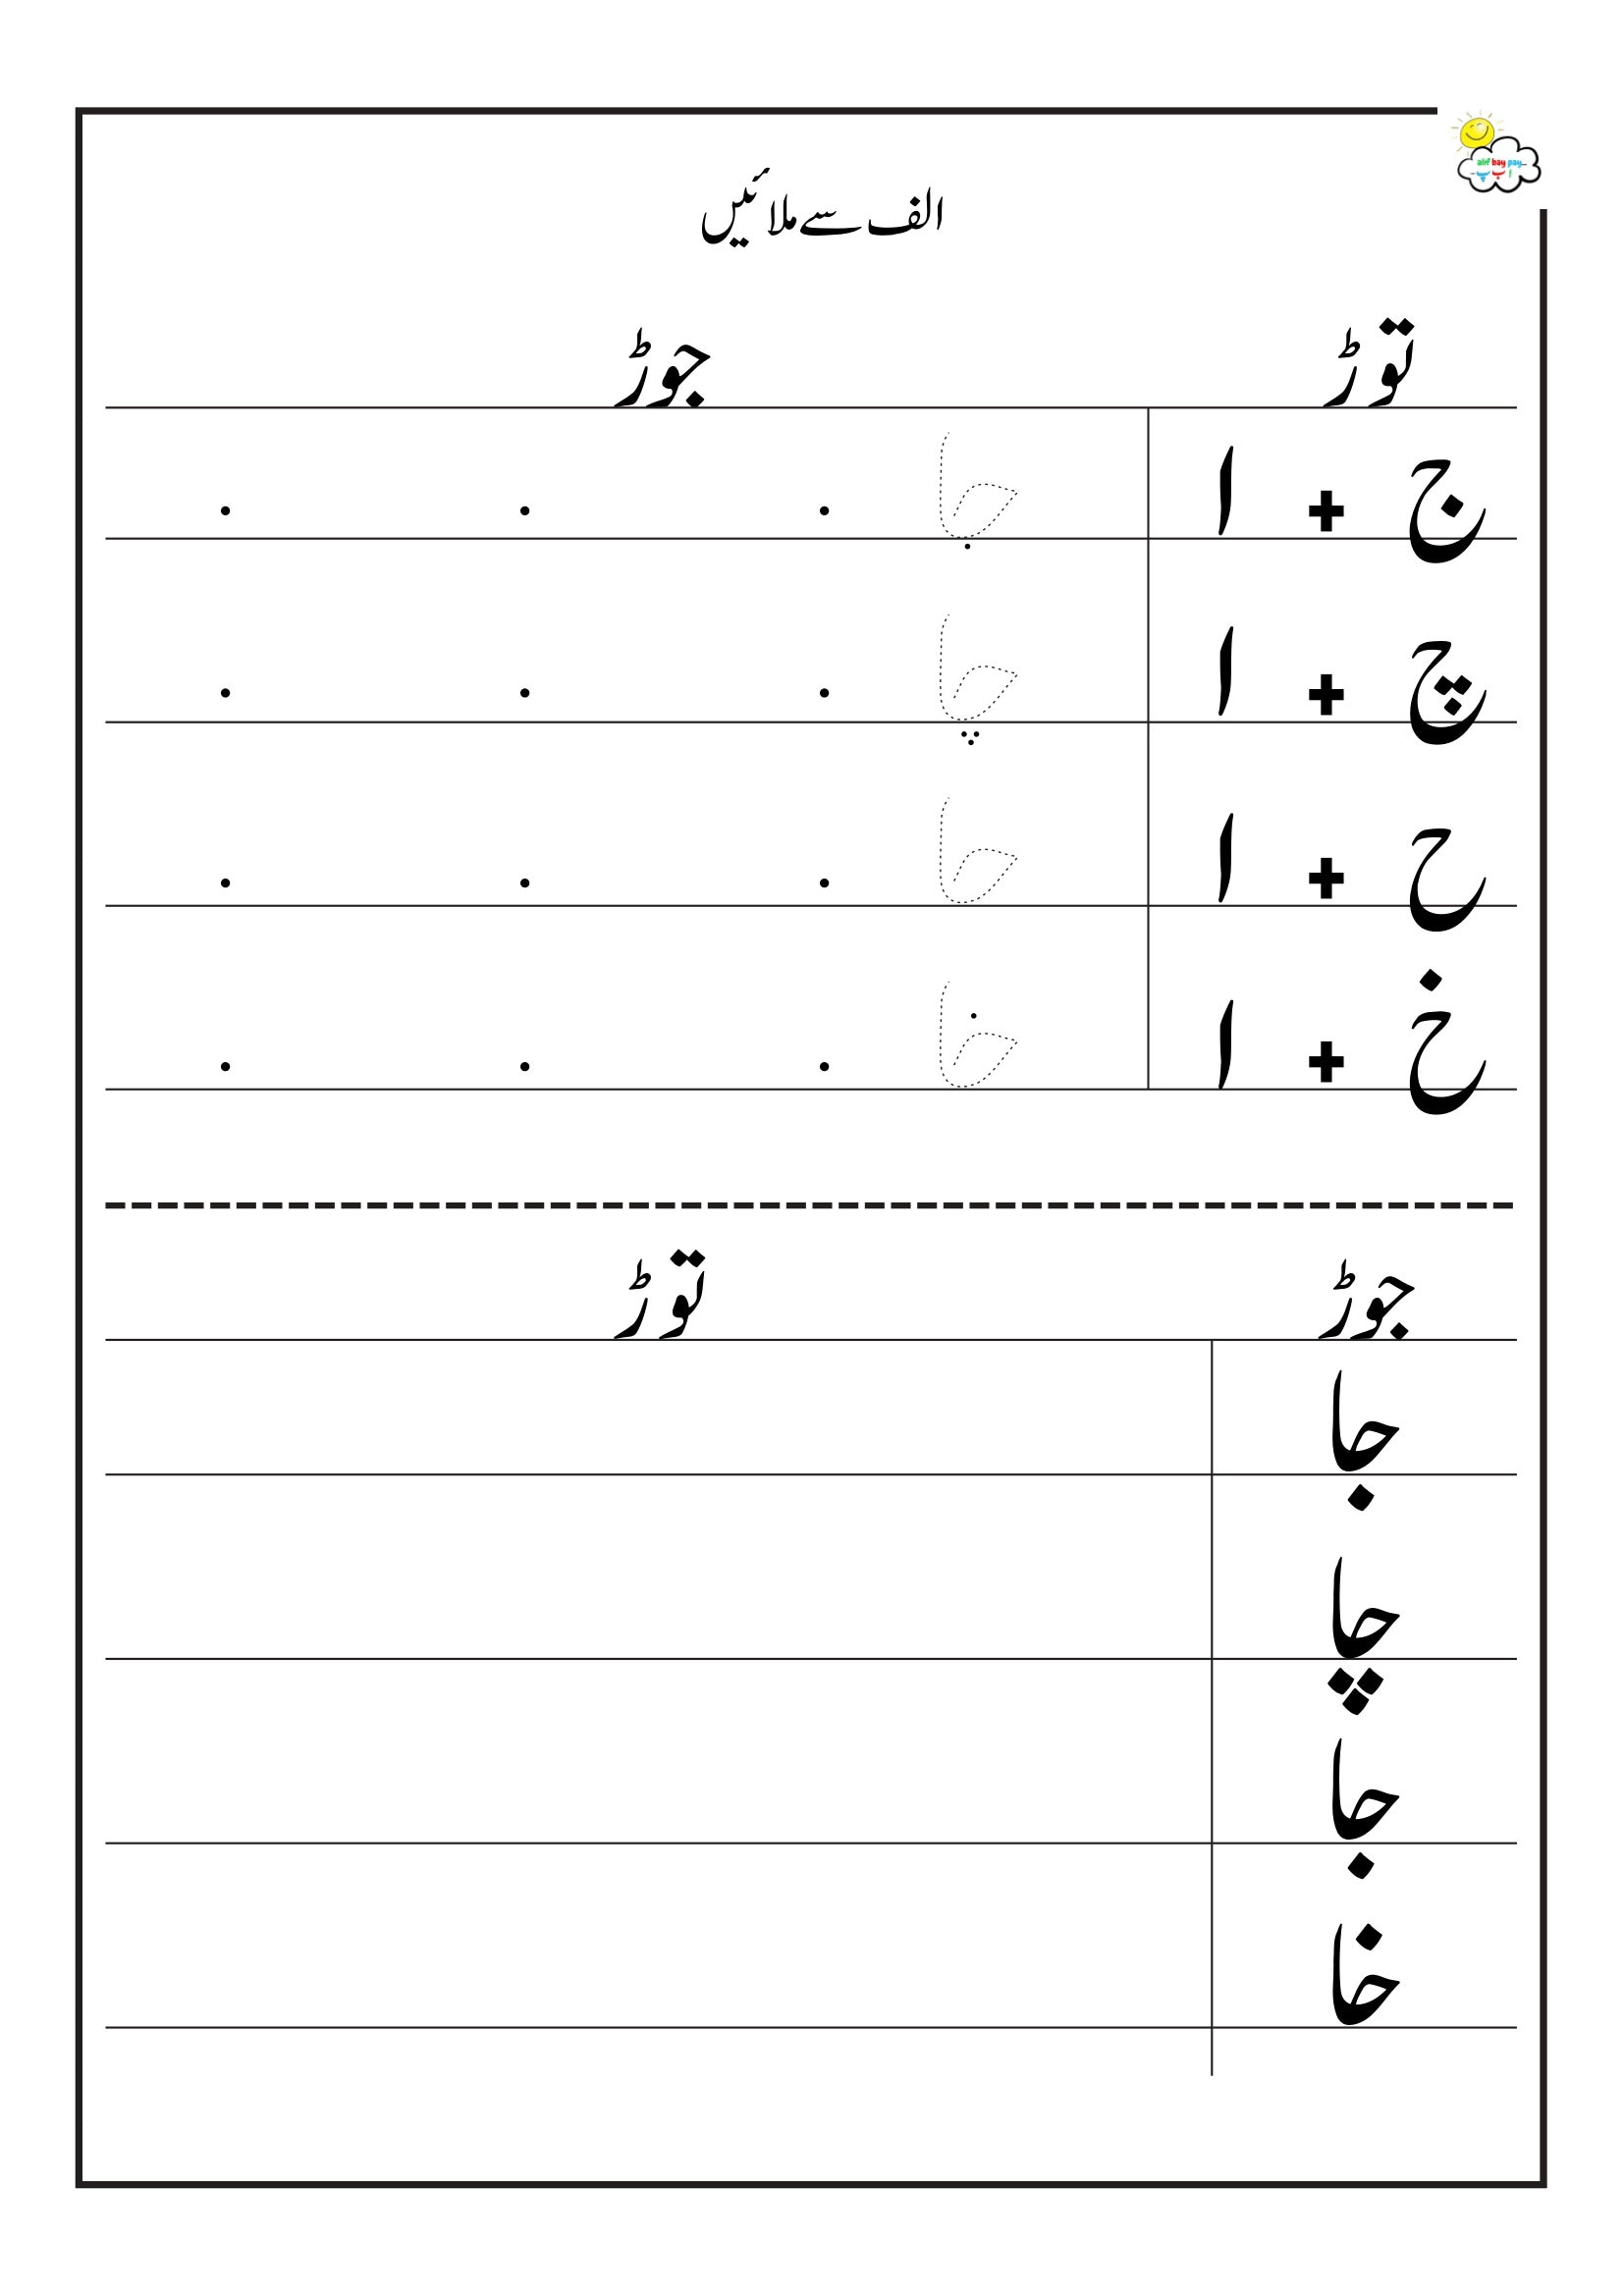 alif bay pay
ا ب پ
الف سے ملائیں
توڑ جوڑ
ج + ا جا
چ + ا چا
ح + ا حا
خ + ا خا
جوڑ توڑ
جا
چا
جا
خا